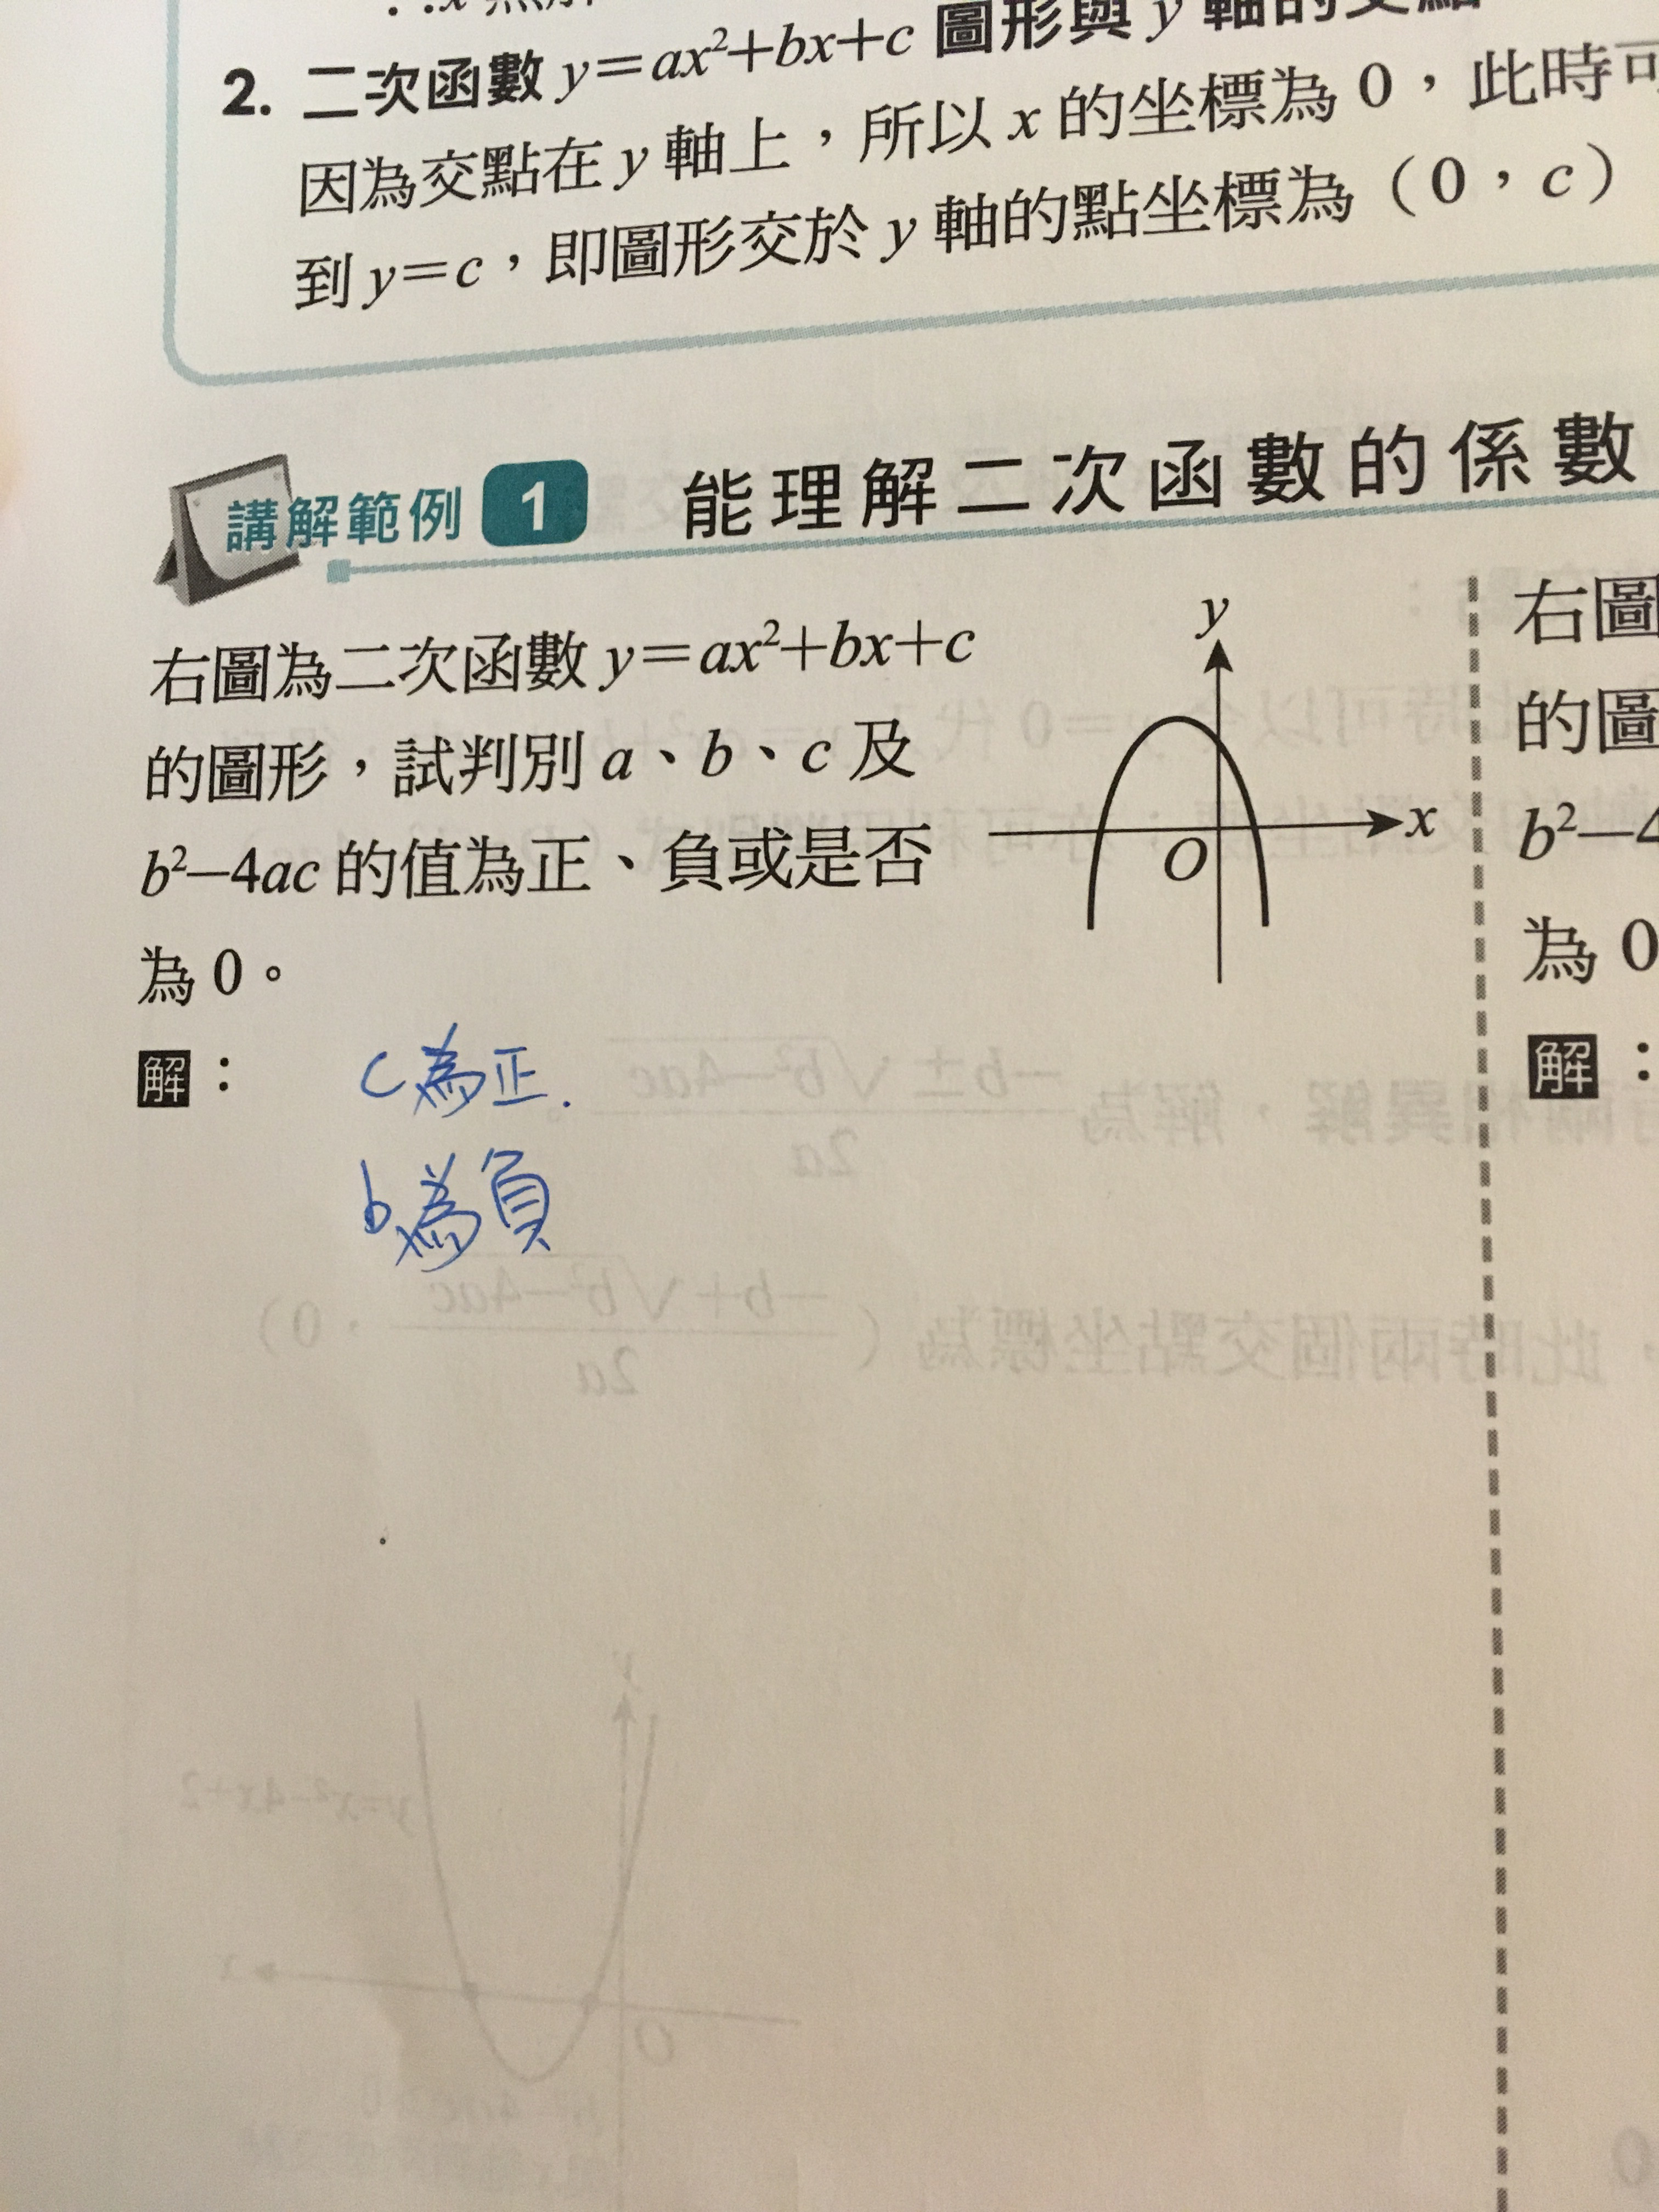 2. 二次函數 y=ax²+bx+c 圖形與 y 軸的交點
因為交點在 y 軸上，所以 x 的坐標為 0，此時可
到 y=c，即圖形交於 y 軸的點坐標為（0，c）
講解範例 1 能理解二次函數的係數
右圖為二次函數 y=ax²+bx+c
的圖形，試判別 a、b、c 及
b²−4ac 的值為正、負或是否
為 0。
y
x
O
解：
c 為正.
b 為負
右圖
的圖
b²−4
為 0
解：